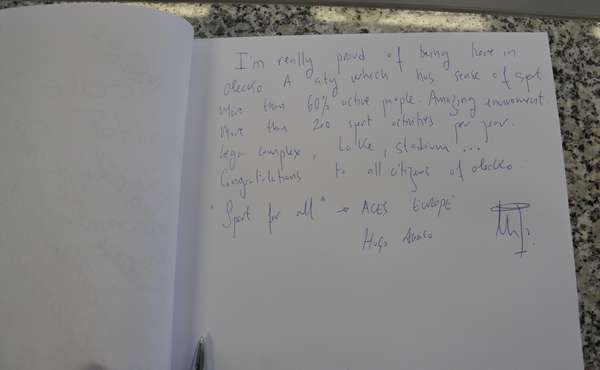 I'm really proud of being here in
olecko A city which has sense of sport
More than 60% active people. Amazing environment
More than 200 sport activities per year.
complex, Lake, stadium...
Congratulations to all citizens of olecko.
"Sport for all" → ACES EUROPE
Hugo